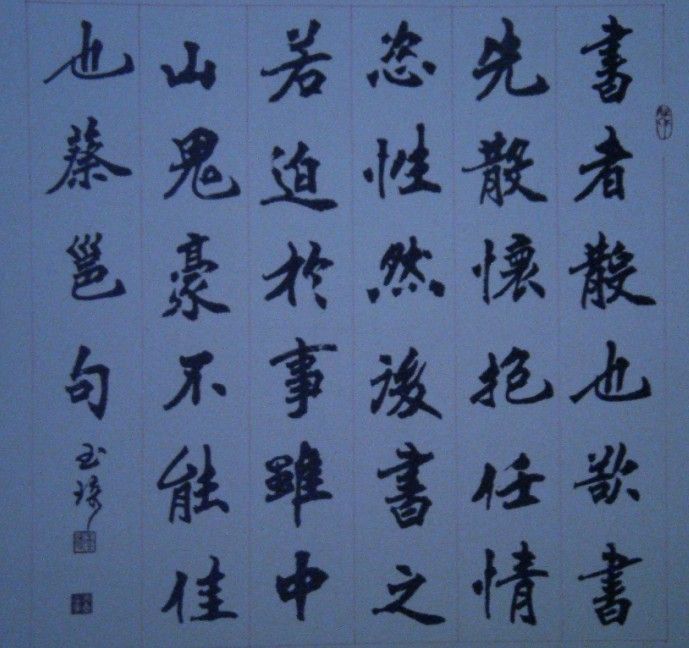 書者散也欲書
先散懷抱任情
恣性然後書之
若迫於事雖中
山鬼豪不能佳
也蔡邕句
玉琦